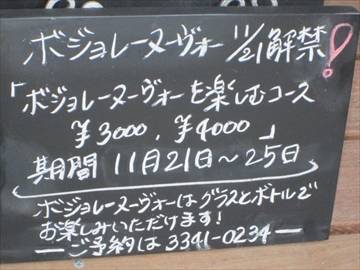 ボジョレーヌーヴォー 11/21解禁!
「ボジョレーヌーヴォーを楽しむコース
¥3000、¥4000」
期間 11月21日～25日
ボジョレーヌーヴォーはグラスとボトルで
お楽しみいただけます!
ーご予約は 3341-0234ー